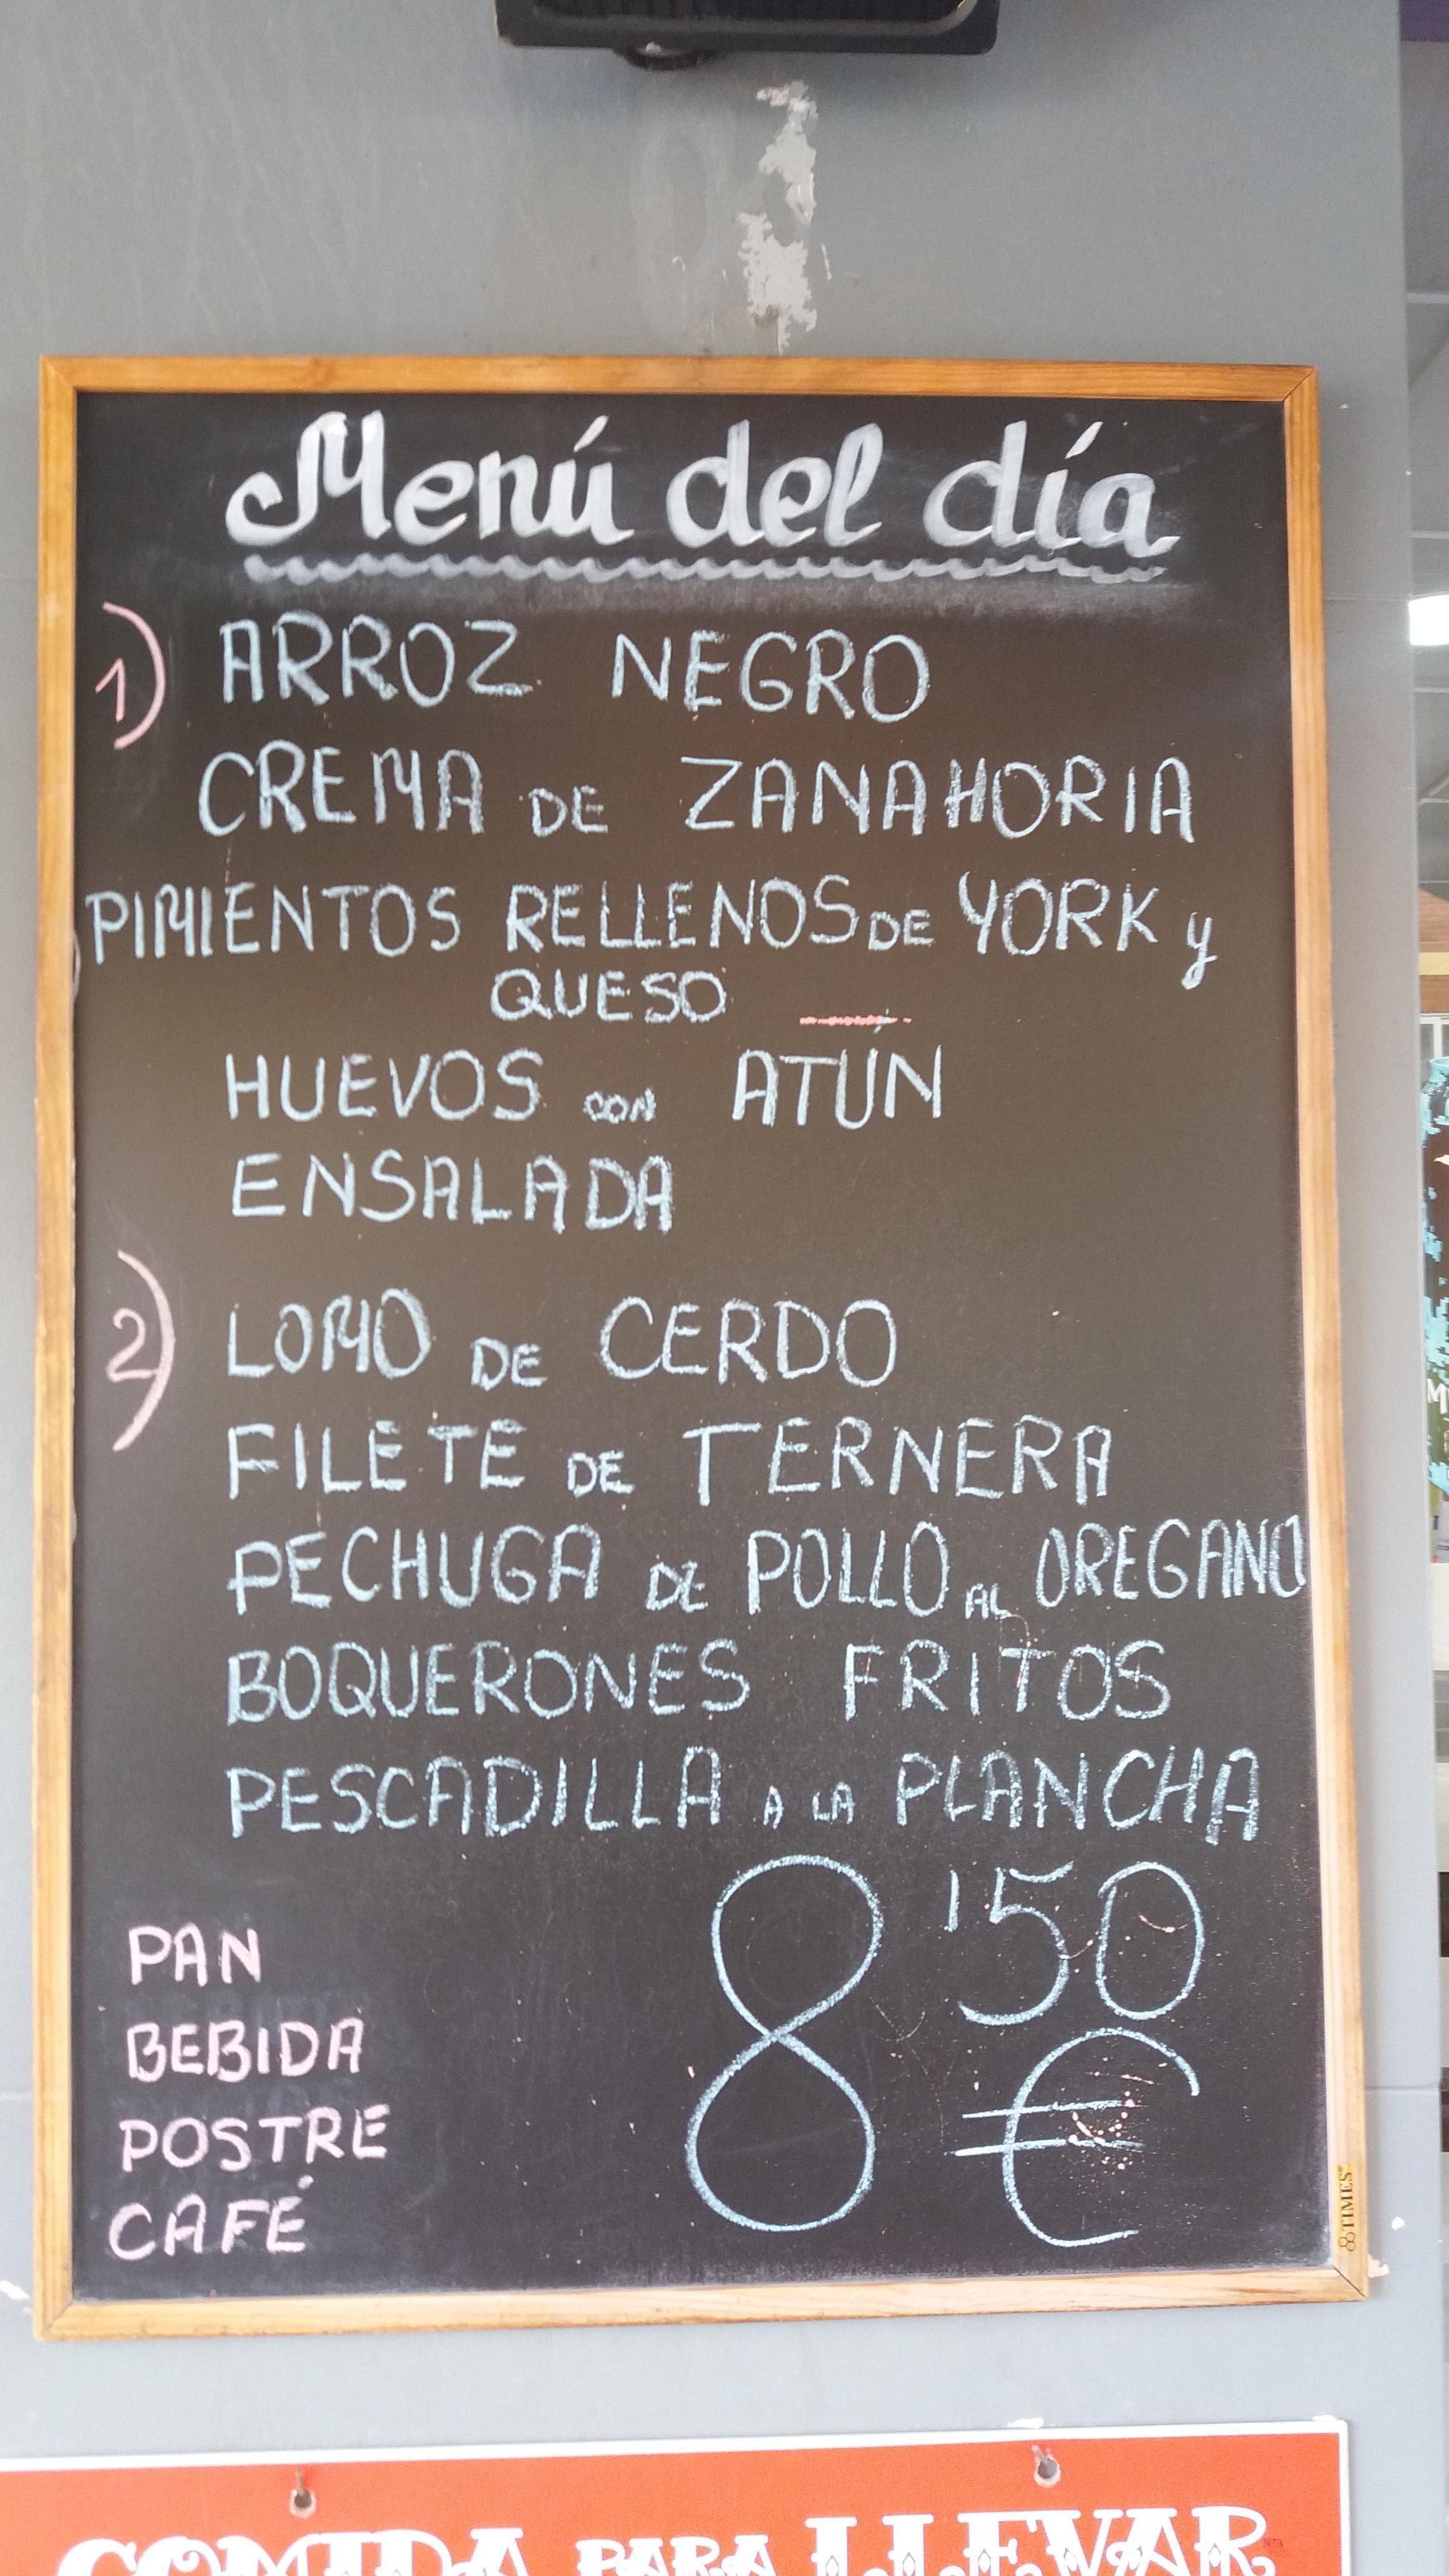 Menú del día
1) ARROZ NEGRO
CREMA DE ZANAHORIA
PIMIENTOS RELLENOS DE YORK y
QUESO
HUEVOS CON ATÚN
ENSALADA
2) LOMO DE CERDO
FILETE DE TERNERA
PECHUGA DE POLLO AL OREGANO
BOQUERONES FRITOS
PESCADILLA A LA PLANCHA
8'50
€
PAN
BEBIDA
POSTRE
CAFÉ
TIMES
COMIDA PARA LLEVAR